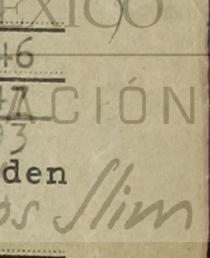 EXICO
46
47
ACIÓN
93
den
os Slim